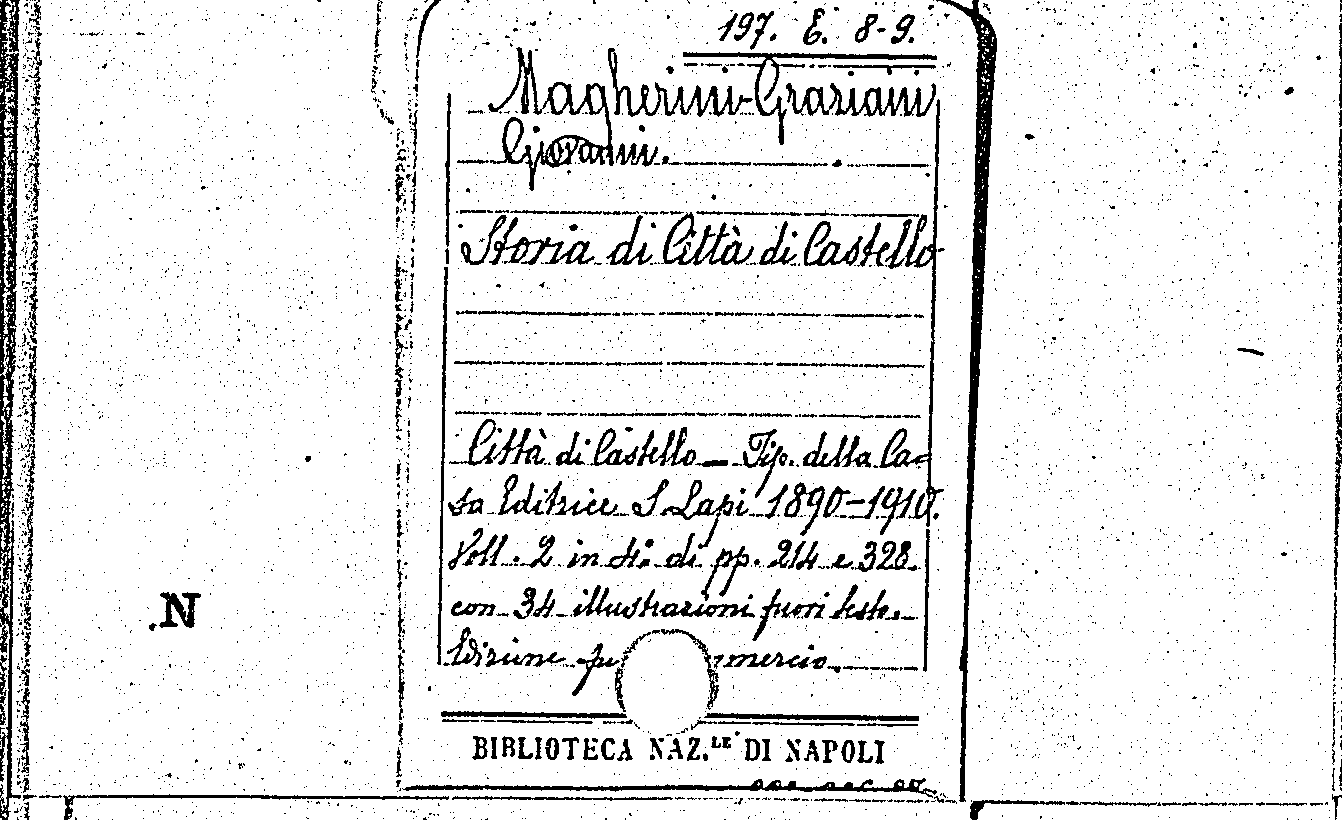 197. E. 8-9.
Magherini-Graziani
Giovanni.
Storia di Città di Castello
Città di Castello — Tip. della Ca=
sa Editrice S. Lapi 1890-1910.
Voll. 2 in 4.º di pp. 214 e 328.
con 34 illustrazioni fuori testo.
Edizione fu mmercio.
N
BIBLIOTECA NAZ.LE DI NAPOLI